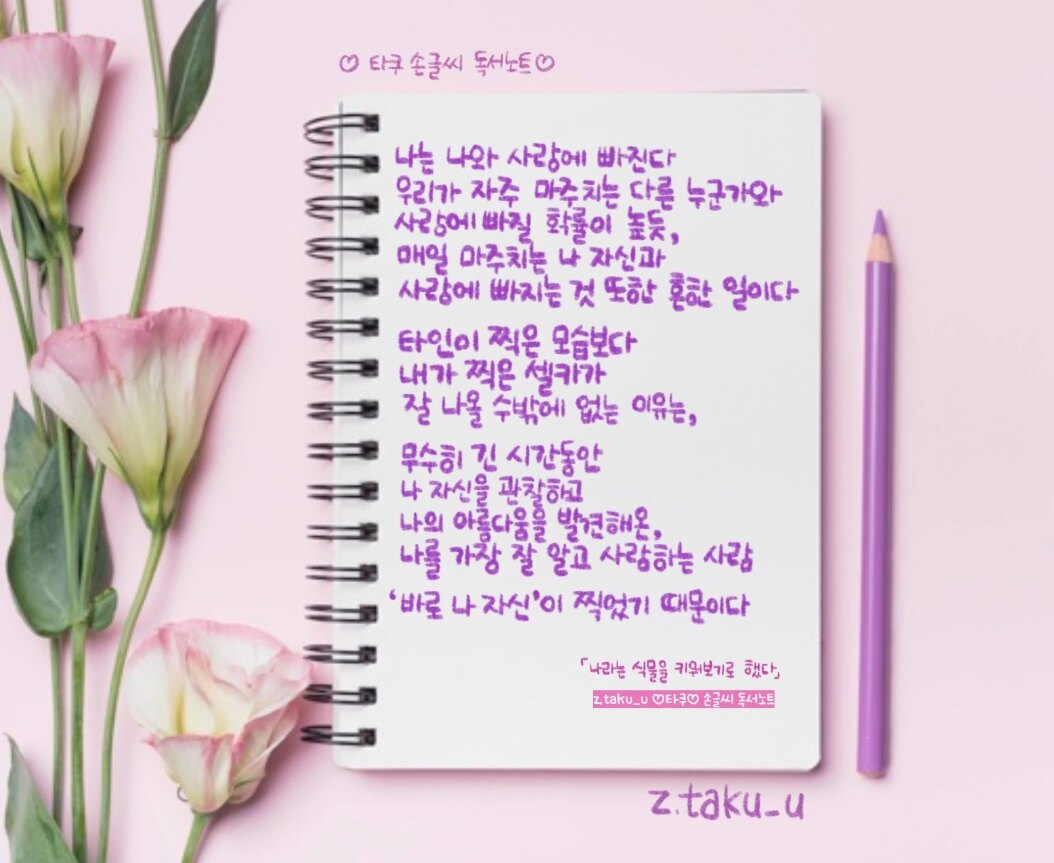 ♡ 타쿠 손글씨 독서노트♡
나는 나와 사랑에 빠진다
우리가 자주 마주치는 다른 누군가와
사랑에 빠질 확률이 높듯,
매일 마주치는 나 자신과
사랑에 빠지는 것 또한 흔한 일이다
타인이 찍은 모습보다
내가 찍은 셀카가
잘 나올 수밖에 없는 이유는,
무수히 긴 시간동안
나 자신을 관찰하고
나의 아름다움을 발견해온,
나를 가장 잘 알고 사랑하는 사람
‘바로 나 자신’이 찍었기 때문이다
「나라는 식물을 키워보기로 했다」
z.taku_u ♡타쿠♡ 손글씨 독서노트
z.taku_u